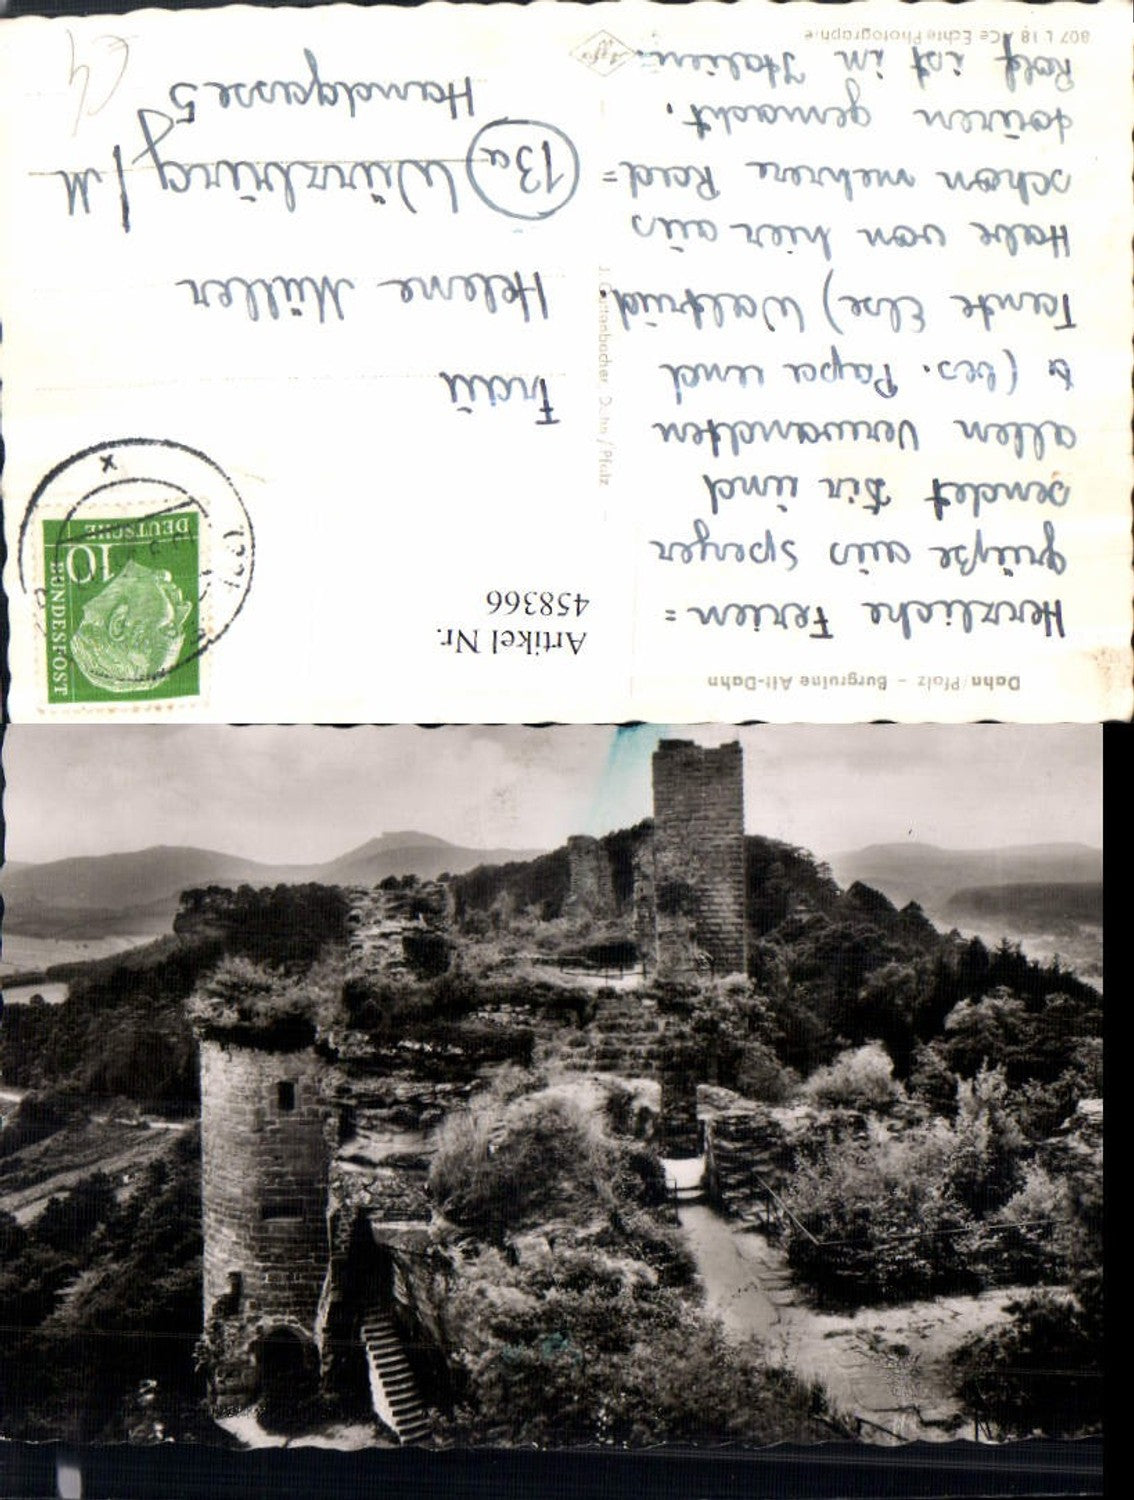 Dahn/Pfalz - Burgruine Alt-Dahn
Herzliche Ferien=
grüße aus Speyer
sendet Dir und
allen Verwandten
(bes. Papa und
Tante Else) Waltrud.
Habe von hier aus
schon mehrere Rad=
touren gemacht.
Rolf ist in Italien.
807 L 18 Echte Photographie
Agfa
J. Guttenbacher, Dahn/Pfalz
Artikel Nr.
458366
DEUTSCHE
BUNDESPOST
10
Frau
Helene Müller
13a Würzburg/M
Handgasse 5